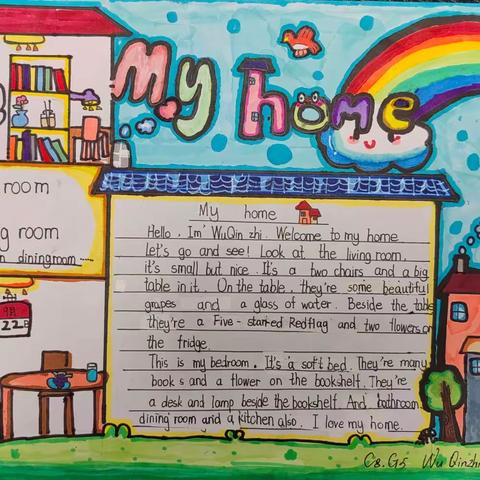 My home
room
g room
n diningroom ....
22日
My home
Hello. Im' WuQin zhi. Welcome to my home.
let's go and see! Look at the living room.
it's small but nice. It's a two chairs and a big
table in it. On the table, they're some beautiful
grapes and a glass of water. Beside the table
they're a Five-starred Redflag and two flowers on
the fridge.
This is my bedroom. It's a soft bed. They're many
book s and a flower on the bookshelf. They're
a desk and lamp beside the bookshelf. And bathroom
dining room and a kitchen also. I love my home.
C8. G5 Wu Qinzhi